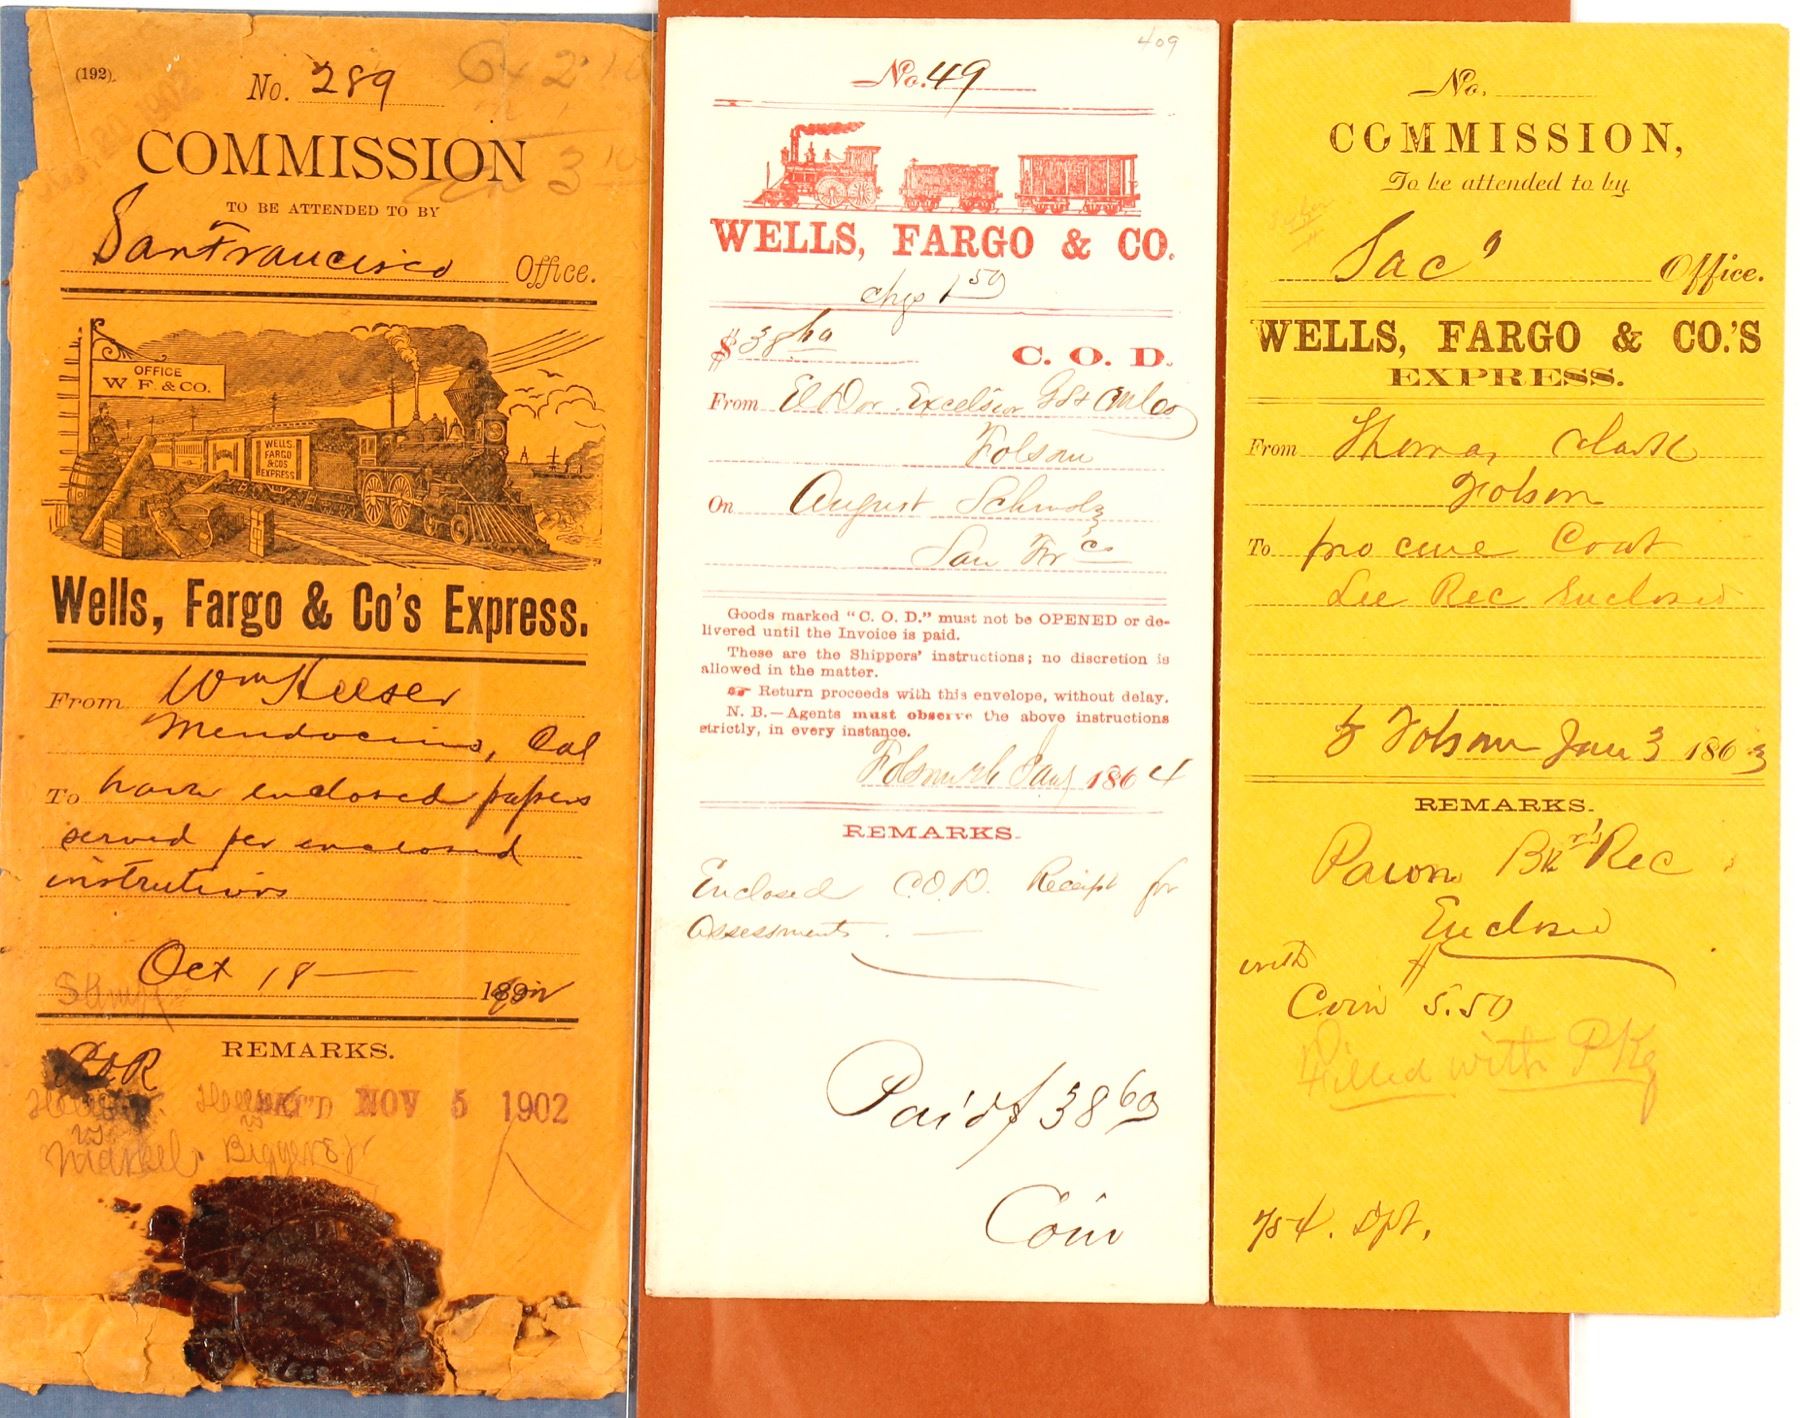 (192).
No. 289
COMMISSION
TO BE ATTENDED TO BY
San Francisco Office.
OFFICE
W. F. & CO.
WELLS
FARGO
& COS
EXPRESS
Wells, Fargo & Co's Express.
From Wm Heeser
Mendocino, Cal
To have enclosed papers
served per enclosed
instrutions
Oct 18 — 189
REMARKS.
NOV 5 1902
vs
Markel Biggers
409
No. 49
WELLS, FARGO & CO.
chgs 1 50
$ 38 60 C. O. D.
From El Dor. Excelsior
Folsom
On August
San Fr co
Goods marked "C. O. D." must not be OPENED or de-
livered until the Invoice is paid.
These are the Shippers' instructions; no discretion is
allowed in the matter.
☞ Return proceeds with this envelope, without delay.
N. B.—Agents must observe the above instructions
strictly, in every instance.
Folsom 1864
REMARKS.
Enclosed C.O.D. Receipt for
Assessments. —
Paid $ 38 60
Coin
No.
COMMISSION,
To be attended to by
Sac' Office.
WELLS, FARGO & CO.'S
EXPRESS.
From Thomas Clark
Folsom
To procure Coat
See Rec Enclosed
Folsom Jan 3 1863
REMARKS.
Pawn Bkr's Rec
Enclosed
with
Coin 5.50
Filled with PKg